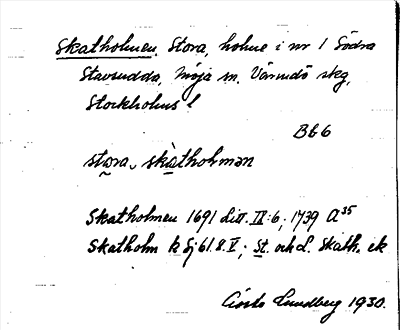 Skatholmen, Stora, holme i nr 1 Södra
Stavsudda, Möja sn. Värmdö skg,
Stockholms l
Bb6
stora, skatholmən
Skatholmen 1691 Litt. IV:6; 1739 A 35
Skatholm k Sj 61.8.V; St. och L. Skath. ek
Gösta Lundberg 1930.